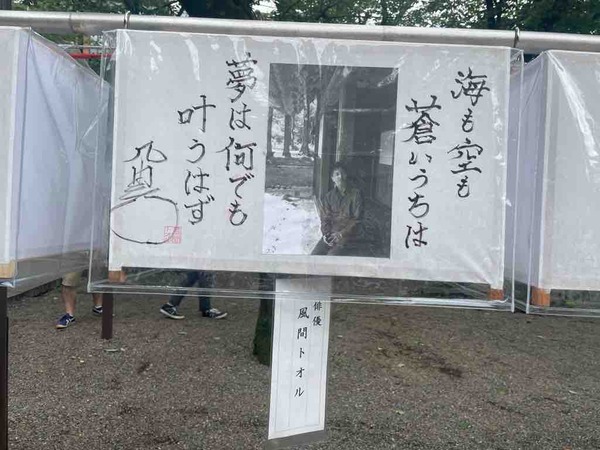 海も空も
蒼いうちは
夢は何でも
叶うはず
俳優
風間トオル